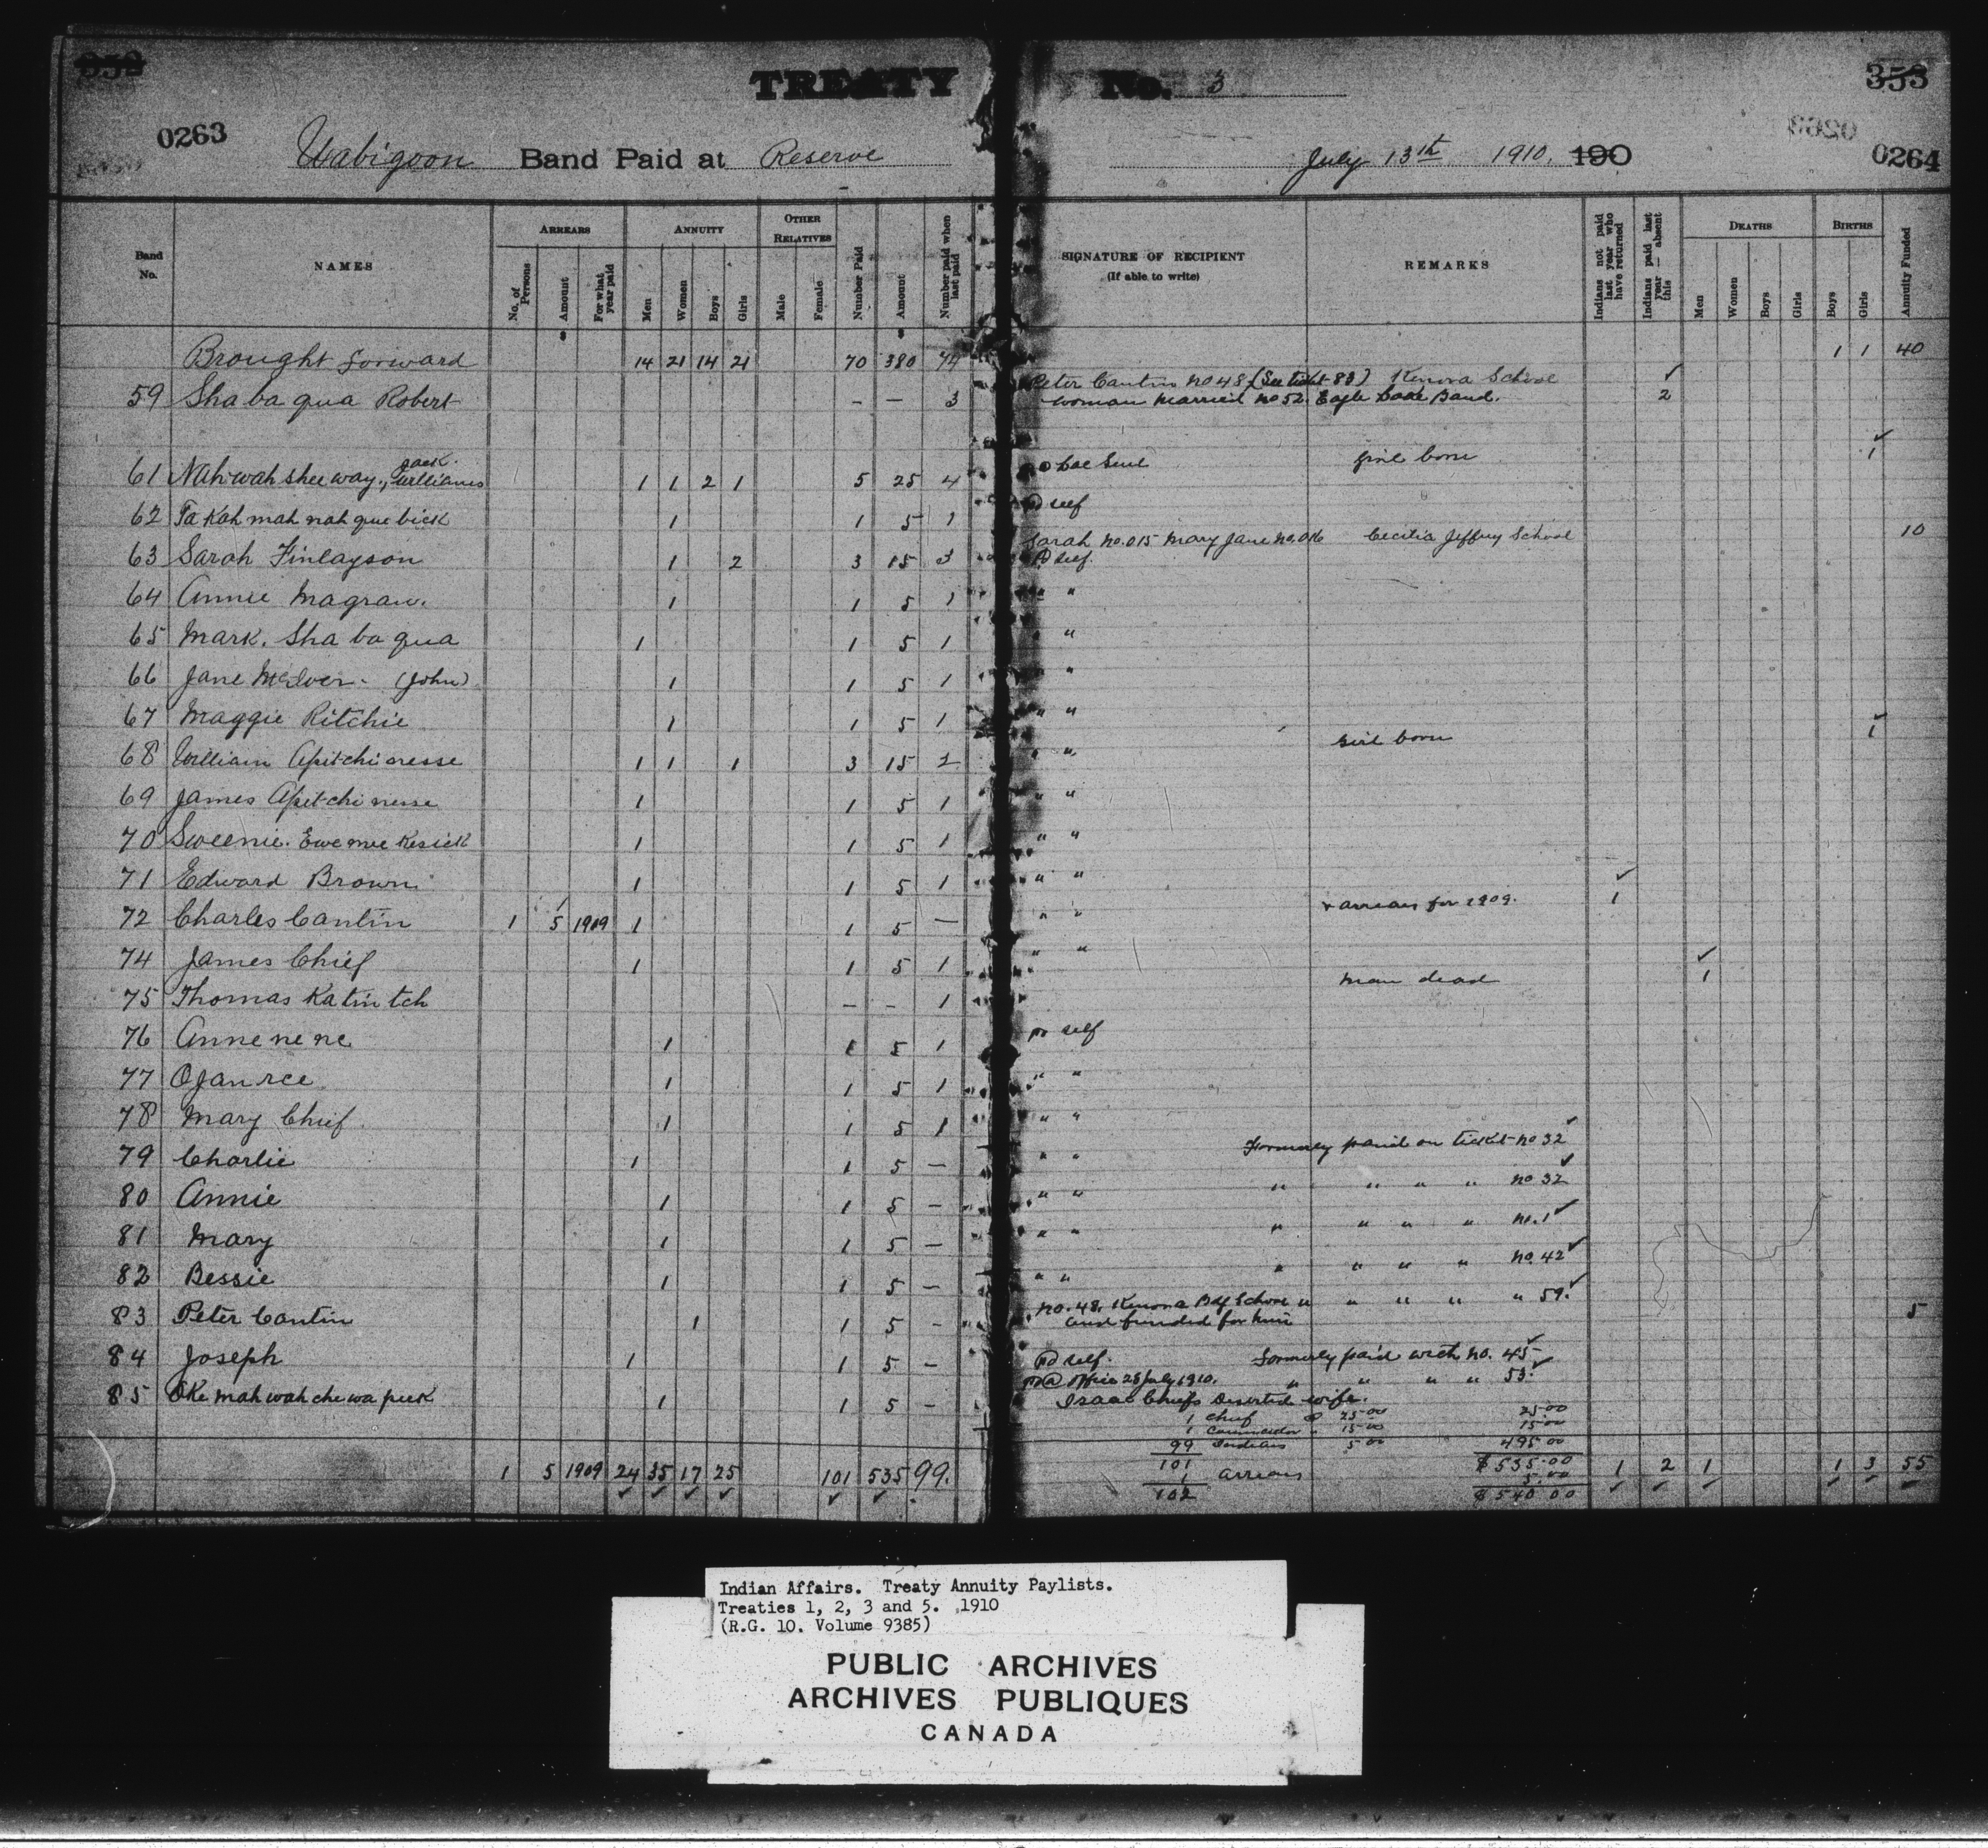 TREATY No. 3
353
0263
0264
Wabigoon Band Paid at Reserve July 13th 1910. 190
Band No.
NAMES
ARREARS
No. of Persons
Amount
For what year paid
ANNUITY
Men
Women
Boys
Girls
OTHER RELATIVES
Male
Female
Number Paid
Amount
Number paid when last paid
SIGNATURE OF RECIPIENT
(If able to write)
REMARKS
Indians not paid last year who have returned
Indians paid last year — absent this
DEATHS
Men
Women
Boys
Girls
BIRTHS
Boys
Girls
Annuity Funded
Brought forward 14 21 14 21 70 380 74 1 1 40
Peter Cantin no 48 (See tickt 83) Kenora School ✓
59 Sha ba qua Robert — — 3 woman married no 52. Eagle Lake Band. 2
61 Nah-wah shee way., Jack. Williams 1 1 2 1 5 25 4 girl born 1 ✓
62 Ta Kah mah nah que bick 1 1 5 1 pd self
Sarah no.015 Mary Jane no.016 Cecilia Jeffrey School 10
63 Sarah Finlayson 1 2 3 15 3 pd self.
64 Annie Magraw. 1 1 5 1 " "
65 Mark. Sha ba qua 1 1 5 1 "
66 Jane McIver - (John) 1 1 5 1 "
67 Maggie Ritchie 1 1 5 1 " "
68 William Apitchinesse 1 1 1 3 15 2 " " girl born 1 ✓
69 James Apitchinesse 1 1 5 1 " "
70 Sweenie. Ewe mee Kesick 1 1 5 1 " "
71 Edward Brown 1 1 5 1 " "
72 Charles Cantin 1 5 1909 1 1 5 — " " + arrears for 1909. 1 ✓
74 James Chief 1 1 5 1 " "
75 Thomas Katin tch — — 1 man dead 1 ✓
76 Anne ne ne 1 1 5 1 pd self
77 Ojan ree 1 1 5 1 " "
78 Mary Chief 1 1 5 1 " "
79 Charlie 1 1 5 — " " Formerly paid on ticket no 32 ✓
80 Annie 1 1 5 — " " " " " " no 32 ✓
81 Mary 1 1 5 — " " " " " " no. 1 ✓
82 Bessie 1 1 5 — " " " " " " no. 42 ✓
83 Peter Cantin 1 1 5 — no. 48. Kenora Bdg School " " " " " 59. ✓ 5
and funded for him
84 Joseph 1 1 5 — pd self. formerly paid with no. 45 ✓
pd @ office 28 July 1910. " " " " 53. ✓
85 Oke mah wah che wa peek 1 1 5 — Isaac Chiefs deserted wife.
1 Chief @ 25.00 25.00
1 Councillor " 15.00 15.00
99 Indians 5.00 495.00
1 5 1909 24 35 17 25 101 535 99. 101 $535.00 1 2 1 1 3 55
1 arrears 5.00
102 $540.00
Indian Affairs. Treaty Annuity Paylists.
Treaties 1, 2, 3 and 5. 1910
(R.G. 10. Volume 9385)
PUBLIC ARCHIVES
ARCHIVES PUBLIQUES
CANADA